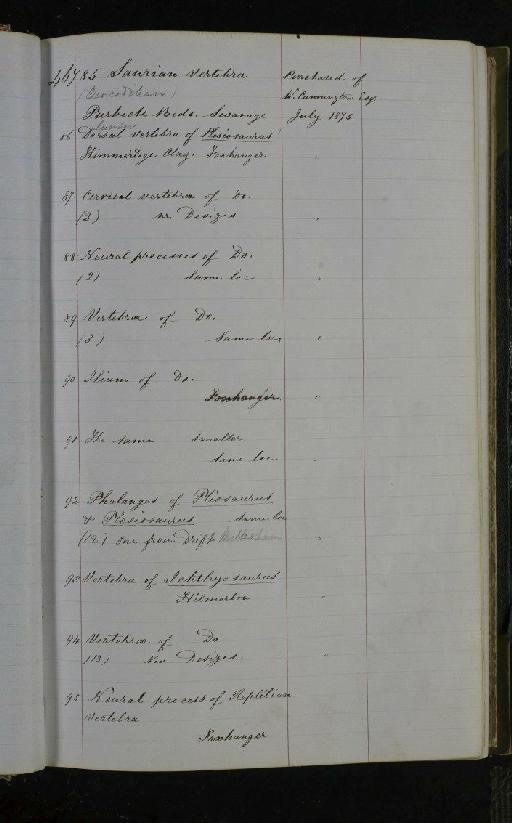 46785 Saurian Vertebra Purchased of
(Crocodilean) W. Cunnington Esq.
Purbeck Beds. Swanage July 1875
86 Dorsal vertebra of Pleiosaurus "
Kimmeridge Clay. Foxhangers.
87 Cervical vertebra of Do.
(2) nr Devizes "
88 Neural processes of Do.
(2) Same loc. "
89 Vertebra of Do.
(3) Same loc. "
90 Ilium of Do.
Foxhangers. "
91 The same smaller
Same loc. "
92 Phalanges of Pliosaurus
& Pleiosaurus same loc
(12) one from Drift "
93 Vertebra of Ichthyosaurus
Hilmarton "
94 Vertebræ of Do
(13) Nr Devizes "
95 Neural process of Reptilian
Vertebra
Foxhanger